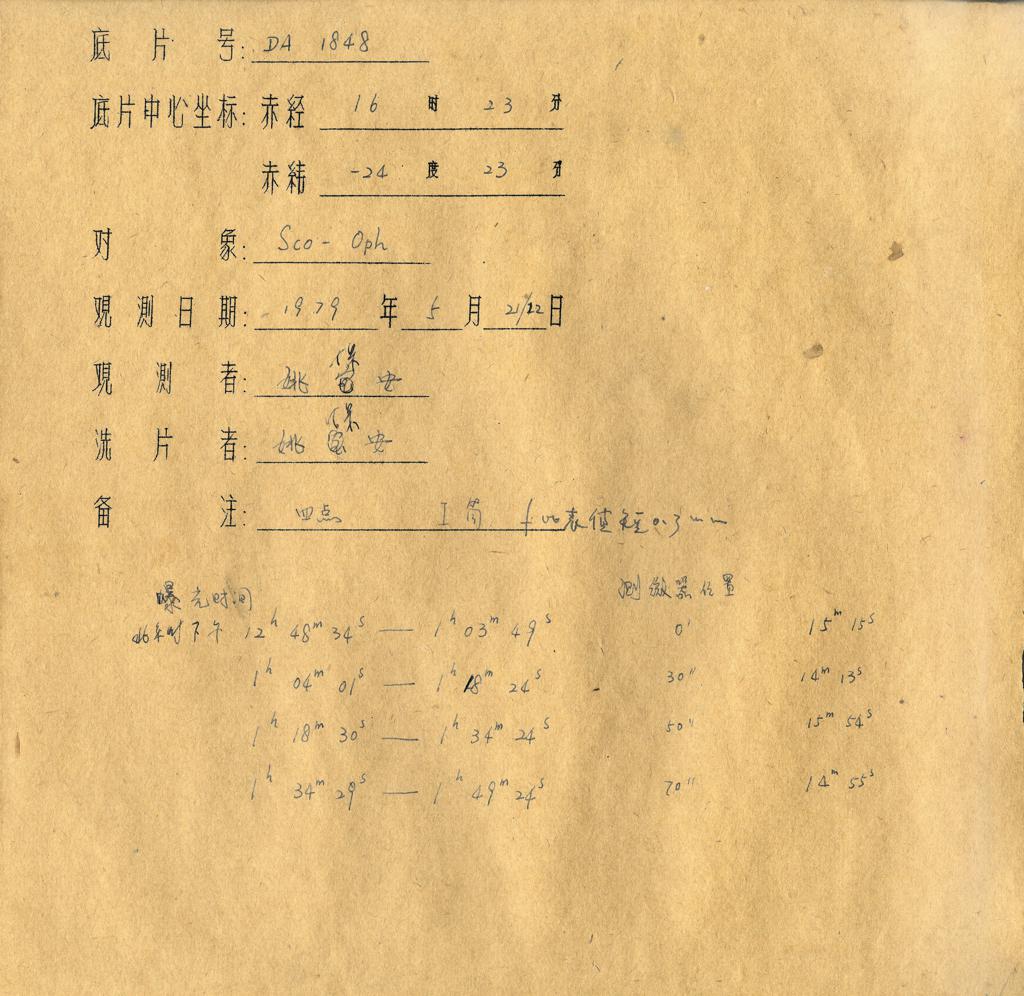 底片号: DA 1848
底片中心坐标: 赤经 16 时 23 分
赤纬 -24 度 23 分
对象: Sco - Oph
观测日期: 1979 年 5 月 21/22 日
观测者: 姚保安
洗片者: 姚保安
备注: 四点 I筒 f比表值短0.3mm
曝光时间 测微器位置
北京时下午 12h 48m 34s — 1h 03m 49s 0' 15m 15s
1h 04m 01s — 1h 18m 24s 30" 14m 13s
1h 18m 30s — 1h 34m 24s 50" 15m 54s
1h 34m 29s — 1h 49m 24s 70" 14m 55s